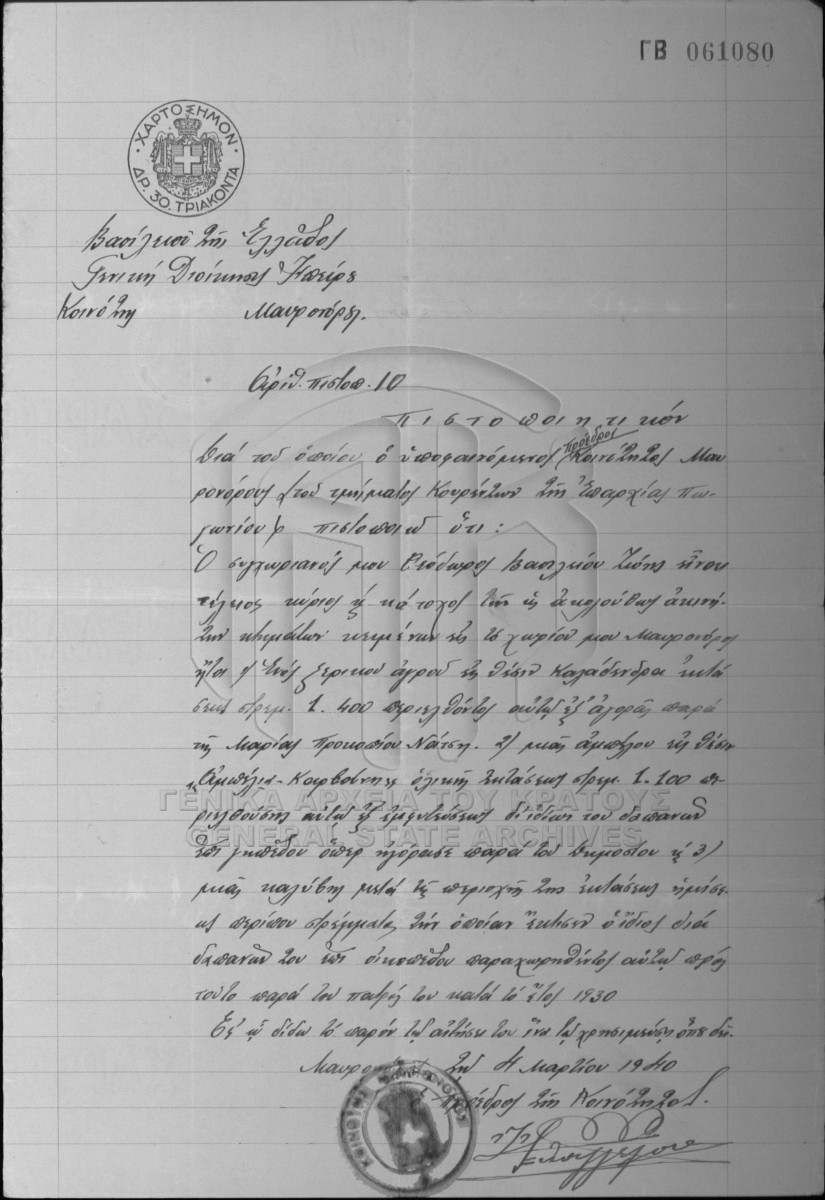 ΓΒ 061080
ΧΑΡΤΟΣΗΜΟΝ
ΔΡ. 30. ΤΡΙΑΚΟΝΤΑ
Βασίλειον τῆς Ἑλλάδος
Γενική Διοίκησις Ἠπείρου
Κοινότης Μαυρονόρους
Ἀριθ. πιστοπ. 10
Πιστοποιητικόν
πρόεδρος
Διά του ὁποίου ὁ ὑποφαινόμενος Κοινότητος Μαυ
ρονόρους (του τμήματος Κουρέντων τῆς Ἐπαρχίας Πω
γωνίου) πιστοποιῶ ὅτι:
Ὁ συγχωριανός μου Θεόδωρος Βασιλείου Ζώης εἶναι
τέλειος κύριος & κάτοχος τῶν ὡς ἀκολούθως ἀκινή-
των κτημάτων κειμένων εἰς το χωρίον μου Μαυρονόρος
ἤτοι 1) Ἑνός ξερικου ἀγρού εἰς θέσιν Καλάδενδρα ἐκτά
σεως στρεμ. 1.400 περιελθόντος αὐτῷ ἐξ ἀγορᾶς παρά
τῆς Μαρίας Προκοπίου Νάτση. 2) μιᾶς ἀμπέλου εἰς θέσιν
Ἀμπέλια-Καρβούνη ὁλικῆς ἐκτάσεως στρεμ. 1.100 πε-
ριελθούσης αὐτῷ ἐξ ἐμφυτεύσεως δι' ἰδίων του δαπανῶν
ἐπί γηπέδου ὅπερ ἠγόρασε παρά του Δημοσίου & 3)
μιᾶς καλύβης μετά τῆς περιοχῆς της ἐκτάσεως ἡμίσε-
ος περίπου στρέμματος τήν ὁποίαν ἔκτισεν ὁ ἴδιος διά
δαπανῶν του ἐπί οἰκοπέδου παραχωρηθέντος αὐτῷ πρός
τοῦτο παρά του πατρός του κατά τό ἔτος 1930
Ἐφ' ᾧ δίδω τό παρόν τῇ αἰτήσει του ἵνα τῷ χρησιμεύσῃ ὅπου δεῖ.
τῇ 4 Μαρτίου 1940
Πρόεδρος τῆς Κοινότητος
ΚΟΙΝΟΤΗΣ
ΓΕΝΙΚΑ ΑΡΧΕΙΑ ΤΟΥ ΚΡΑΤΟΥΣ
GENERAL STATE ARCHIVES